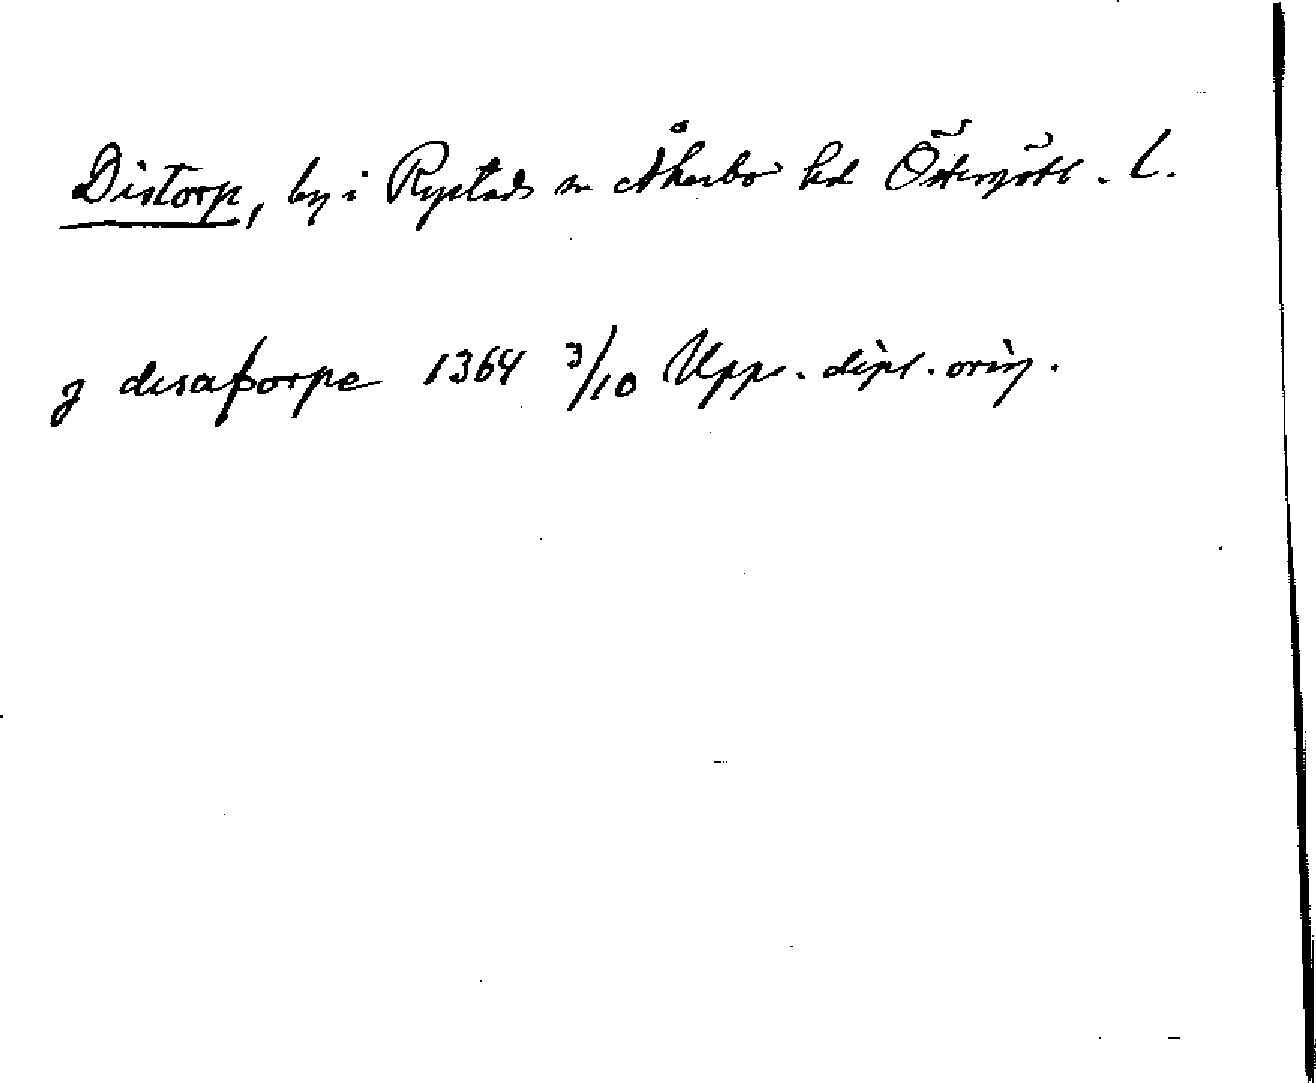 Distorp, by i Rystads sn Åkerbo hd Östergötl. l.
g disaþorpe 1364 3/10 Upps. dipl. orig.